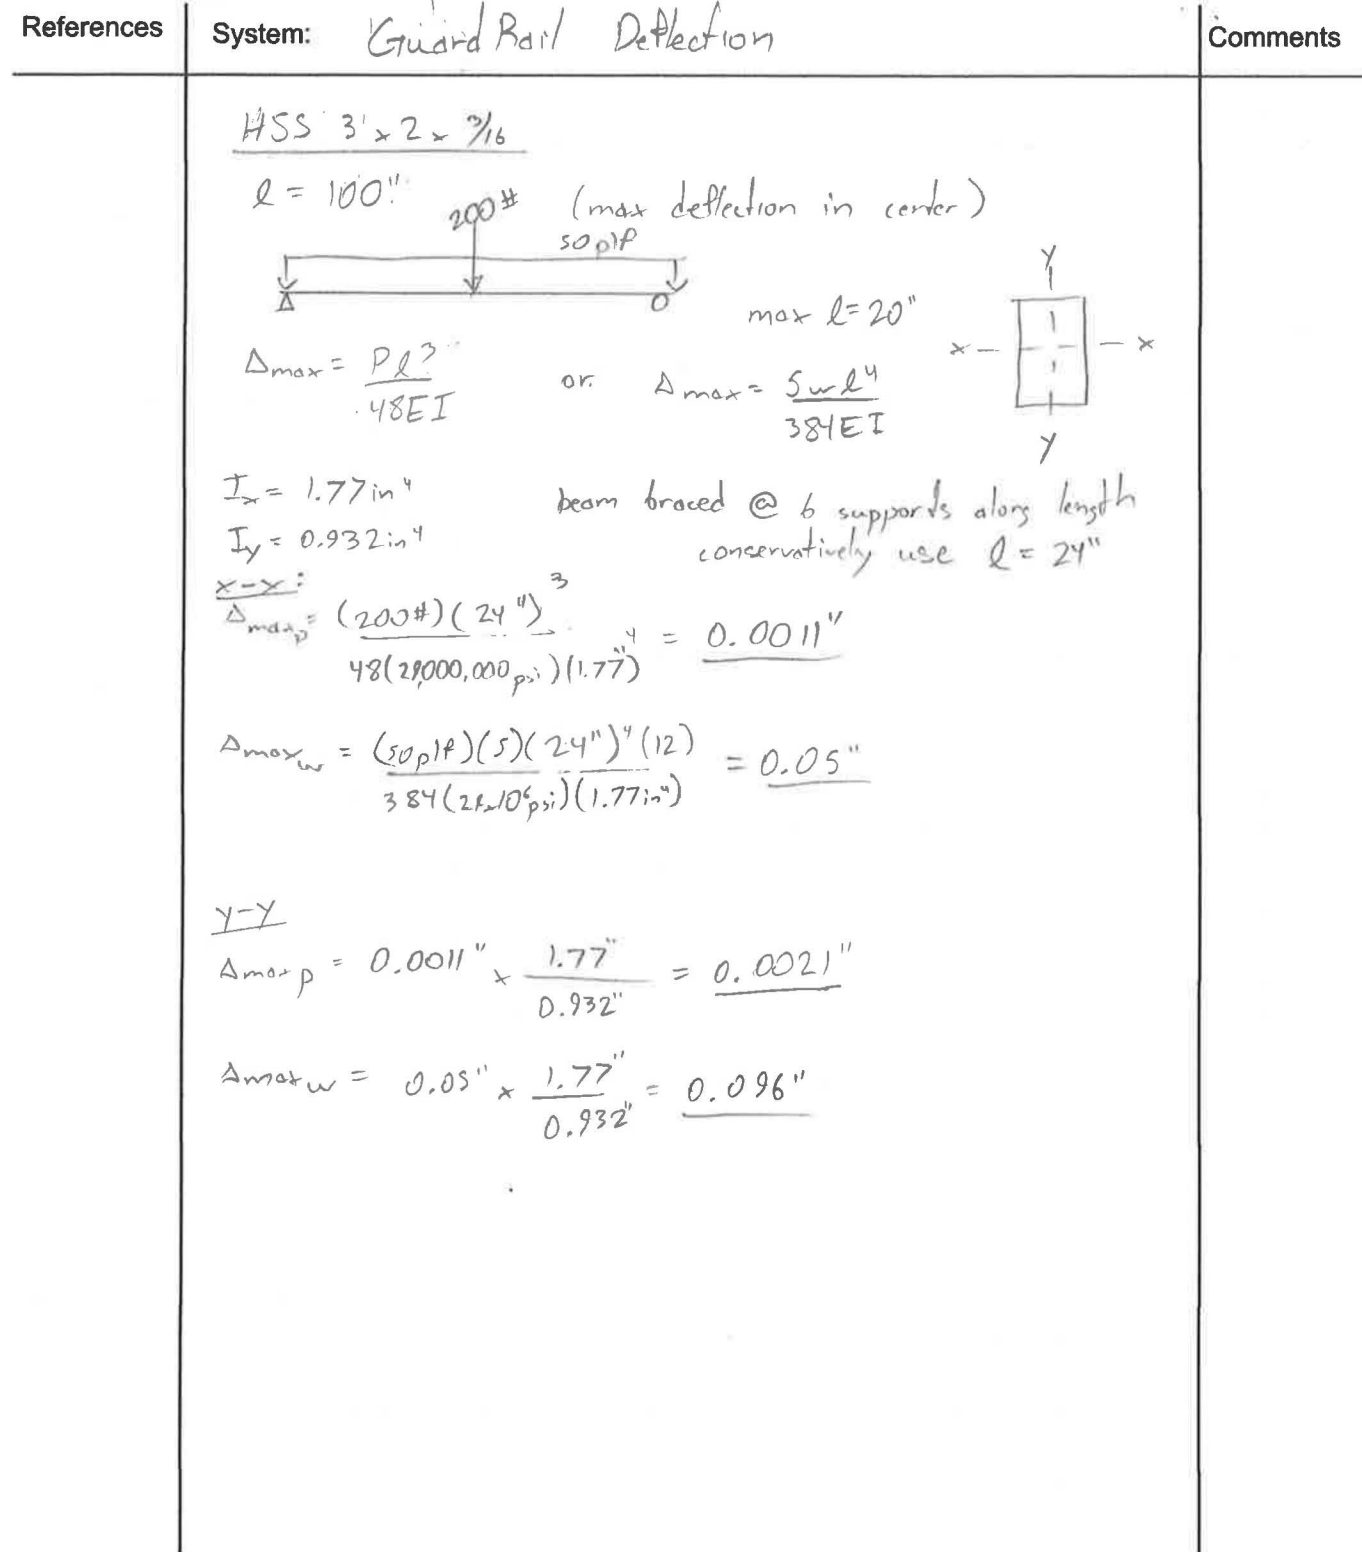 References System: Guard Rail Deflection Comments
HSS 3" x 2 x 3/16
l = 100"
200# (max deflection in center)
50 plf
max l = 20"
Δmax = Pl³/48EI or Δmax = 5wl⁴/384EI
Y
x x
Y
Ix = 1.77 in⁴
Iy = 0.932 in⁴
beam braced @ 6 supports along length
conservatively use l = 24"
x-x:
Δmaxp = (200#)(24")³/48(29,000,000 psi)(1.77")⁴ = 0.0011"
Δmaxw = (50 plf)(5)(24")⁴(12)/384(29x10⁶ psi)(1.77 in⁴) = 0.05"
y-y
Δmax p = 0.0011" x 1.77"/0.932" = 0.0021"
Δmax w = 0.05" x 1.77"/0.932" = 0.096"